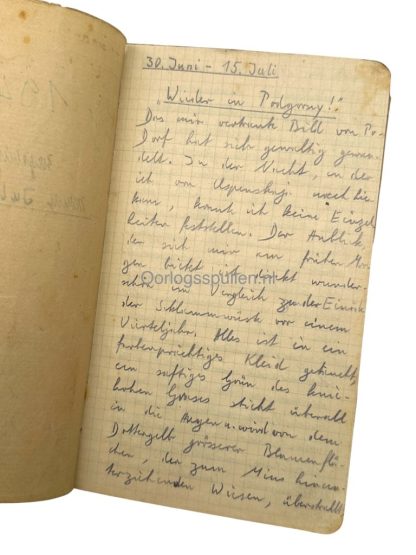 30. Juni - 15. Juli
„Wieder in Podgornoy!"
Das mir vertraute Bild vom Po-
Dorf hat sich gewaltig gewan-
delt. In der Nacht, in der
ich von Uspenskoje nach hier
kam, konnte ich keine Einzel-
heiten feststellen. Der Anblick
der sich mir am frühen Mor-
gen bietet ist direkt wunder-
schön im Vergleich zu der Einöde
der Schlammwüste vor einem
Vierteljahr. Alles ist in ein
farbenprächtiges Kleid getaucht,
ein saftiges Grün des knie-
hohen Grases sticht überall
in die Augen u. wird von dem
Dottergelb grösserer Blumenflä-
chen, der zum Mius hinun-
terziehenden Wiesen, überstrahlt
Oorlogsspullen.nl